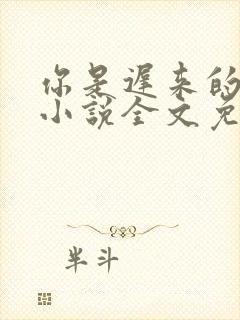 你是迟来的
小说全文免
半斗